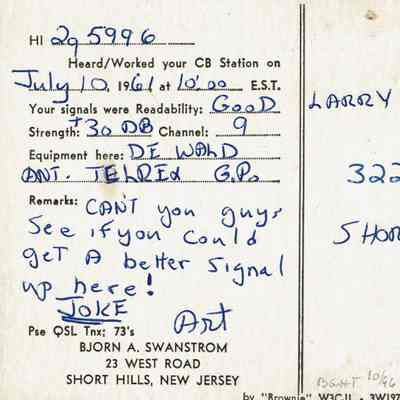 HI 2q 5996
Heard/Worked your CB Station on
July 10, 1961 at 10:00 E.S.T.
Your signals were Readability: GooD
Strength: +30 DB Channel: 9
Equipment here: DE WALD
ANT. TELREX G.P.
Remarks: CANT you guys
See if you could
geT A better signal
up here!
JOKE
Art
Pse QSL Tnx; 73's
BJORN A. SWANSTROM
23 WEST ROAD
SHORT HILLS, NEW JERSEY
LARRY
322
SHOR
by "Brownie" W3CJI - 3W197
10/96